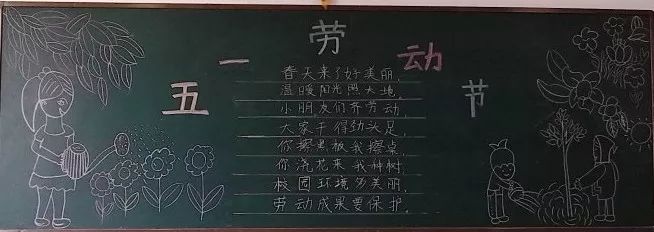 五一劳动节
春天来了好美丽，
温暖阳光照大地，
小朋友们齐劳动，
大家干得劲头足，
你擦黑板我擦桌，
你浇花来我种树，
校园环境多美丽，
劳动成果要保护。